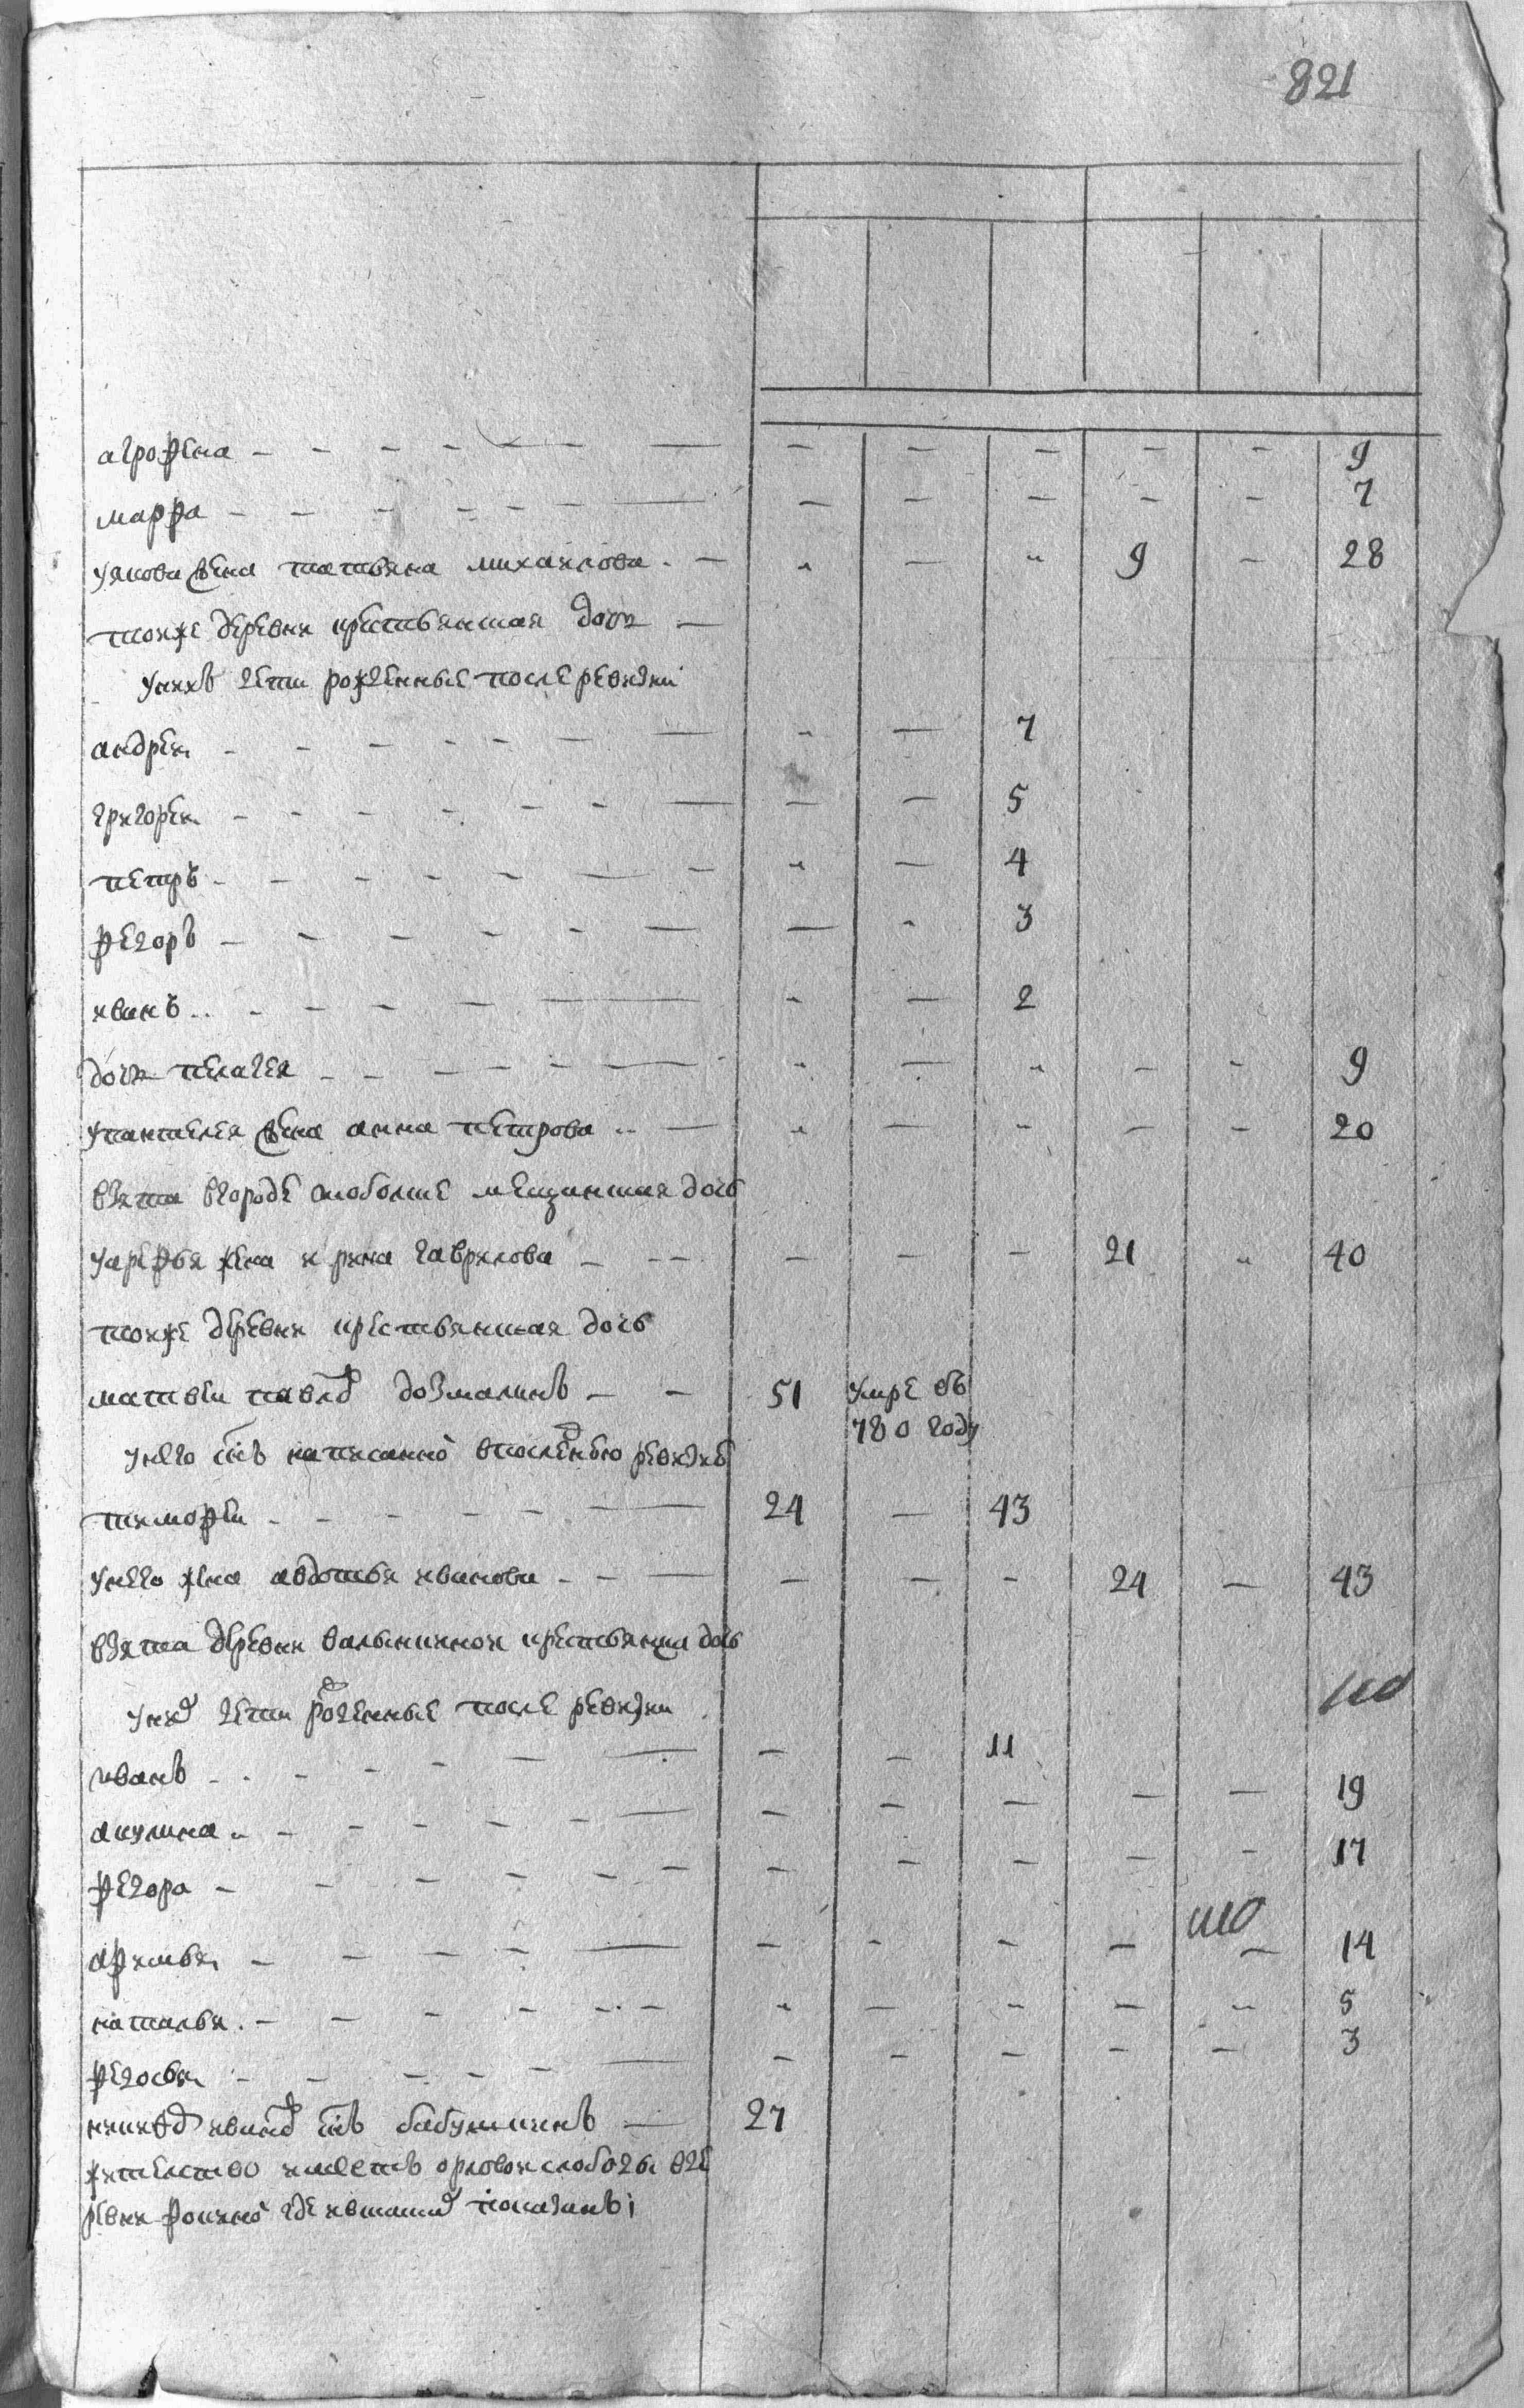 821
агрофена - - - - - - - - - - - - 9
марфа - - - - - - - - - - - - 7
уякова жена татьяна михаилова - - 9 - 28
тоиже деревни крестьянская дочь
унихъ дети рожденные после ревизии
андреи - - - - - - - - - 7
григореи - - - - - - - - - 5
петръ - - - - - - - - - 4
федоръ - - - - - - - - 3
иванъ - - - - - - - 2
дочь пелагея - - - - - - - - - - - 9
упантелея жена анна петрова - - - - - - 20
взята вгороде тоболске мещанская дочь
уарефья жена ирина гаврилова - - - - - 21 - 40
тоиже деревни крестьянская дочь
матвеи павловъ дозмалинъ - - 51 умре въ
780 году
унего снъ написанной впоследнюю ревизию
тимофеи - - - - - - 24 - 43
унего жена авдотья иванова - - - - - - 24 - 43
взята деревни крестьянска дочь
унихъ дети рожденные после ревизии
иванъ - - - - - - - - - 11
акулина - - - - - - - - - - - 19
федора - - - - - - - - - - - 17
афимья - - - - - - - - - - 14
наталья - - - - - - - - - - - 5
федосья - - - - - - - - - - 3
никифоръ ивановъ снъ бабушкинъ - 27
жительство имеетъ орловои слободы вде
ревни где ившкаске показанъ